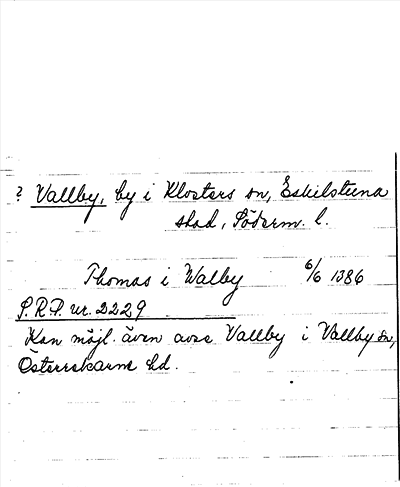 ? Vallby, by i Klosters sn, Eskilstuna
stad, Söderm. l.
Thomas i Walby 6/6 1386
S.R.P. nr. 2229
Kan möjl. även avse Vallby i Vallby sn,
Österrekarne hd.